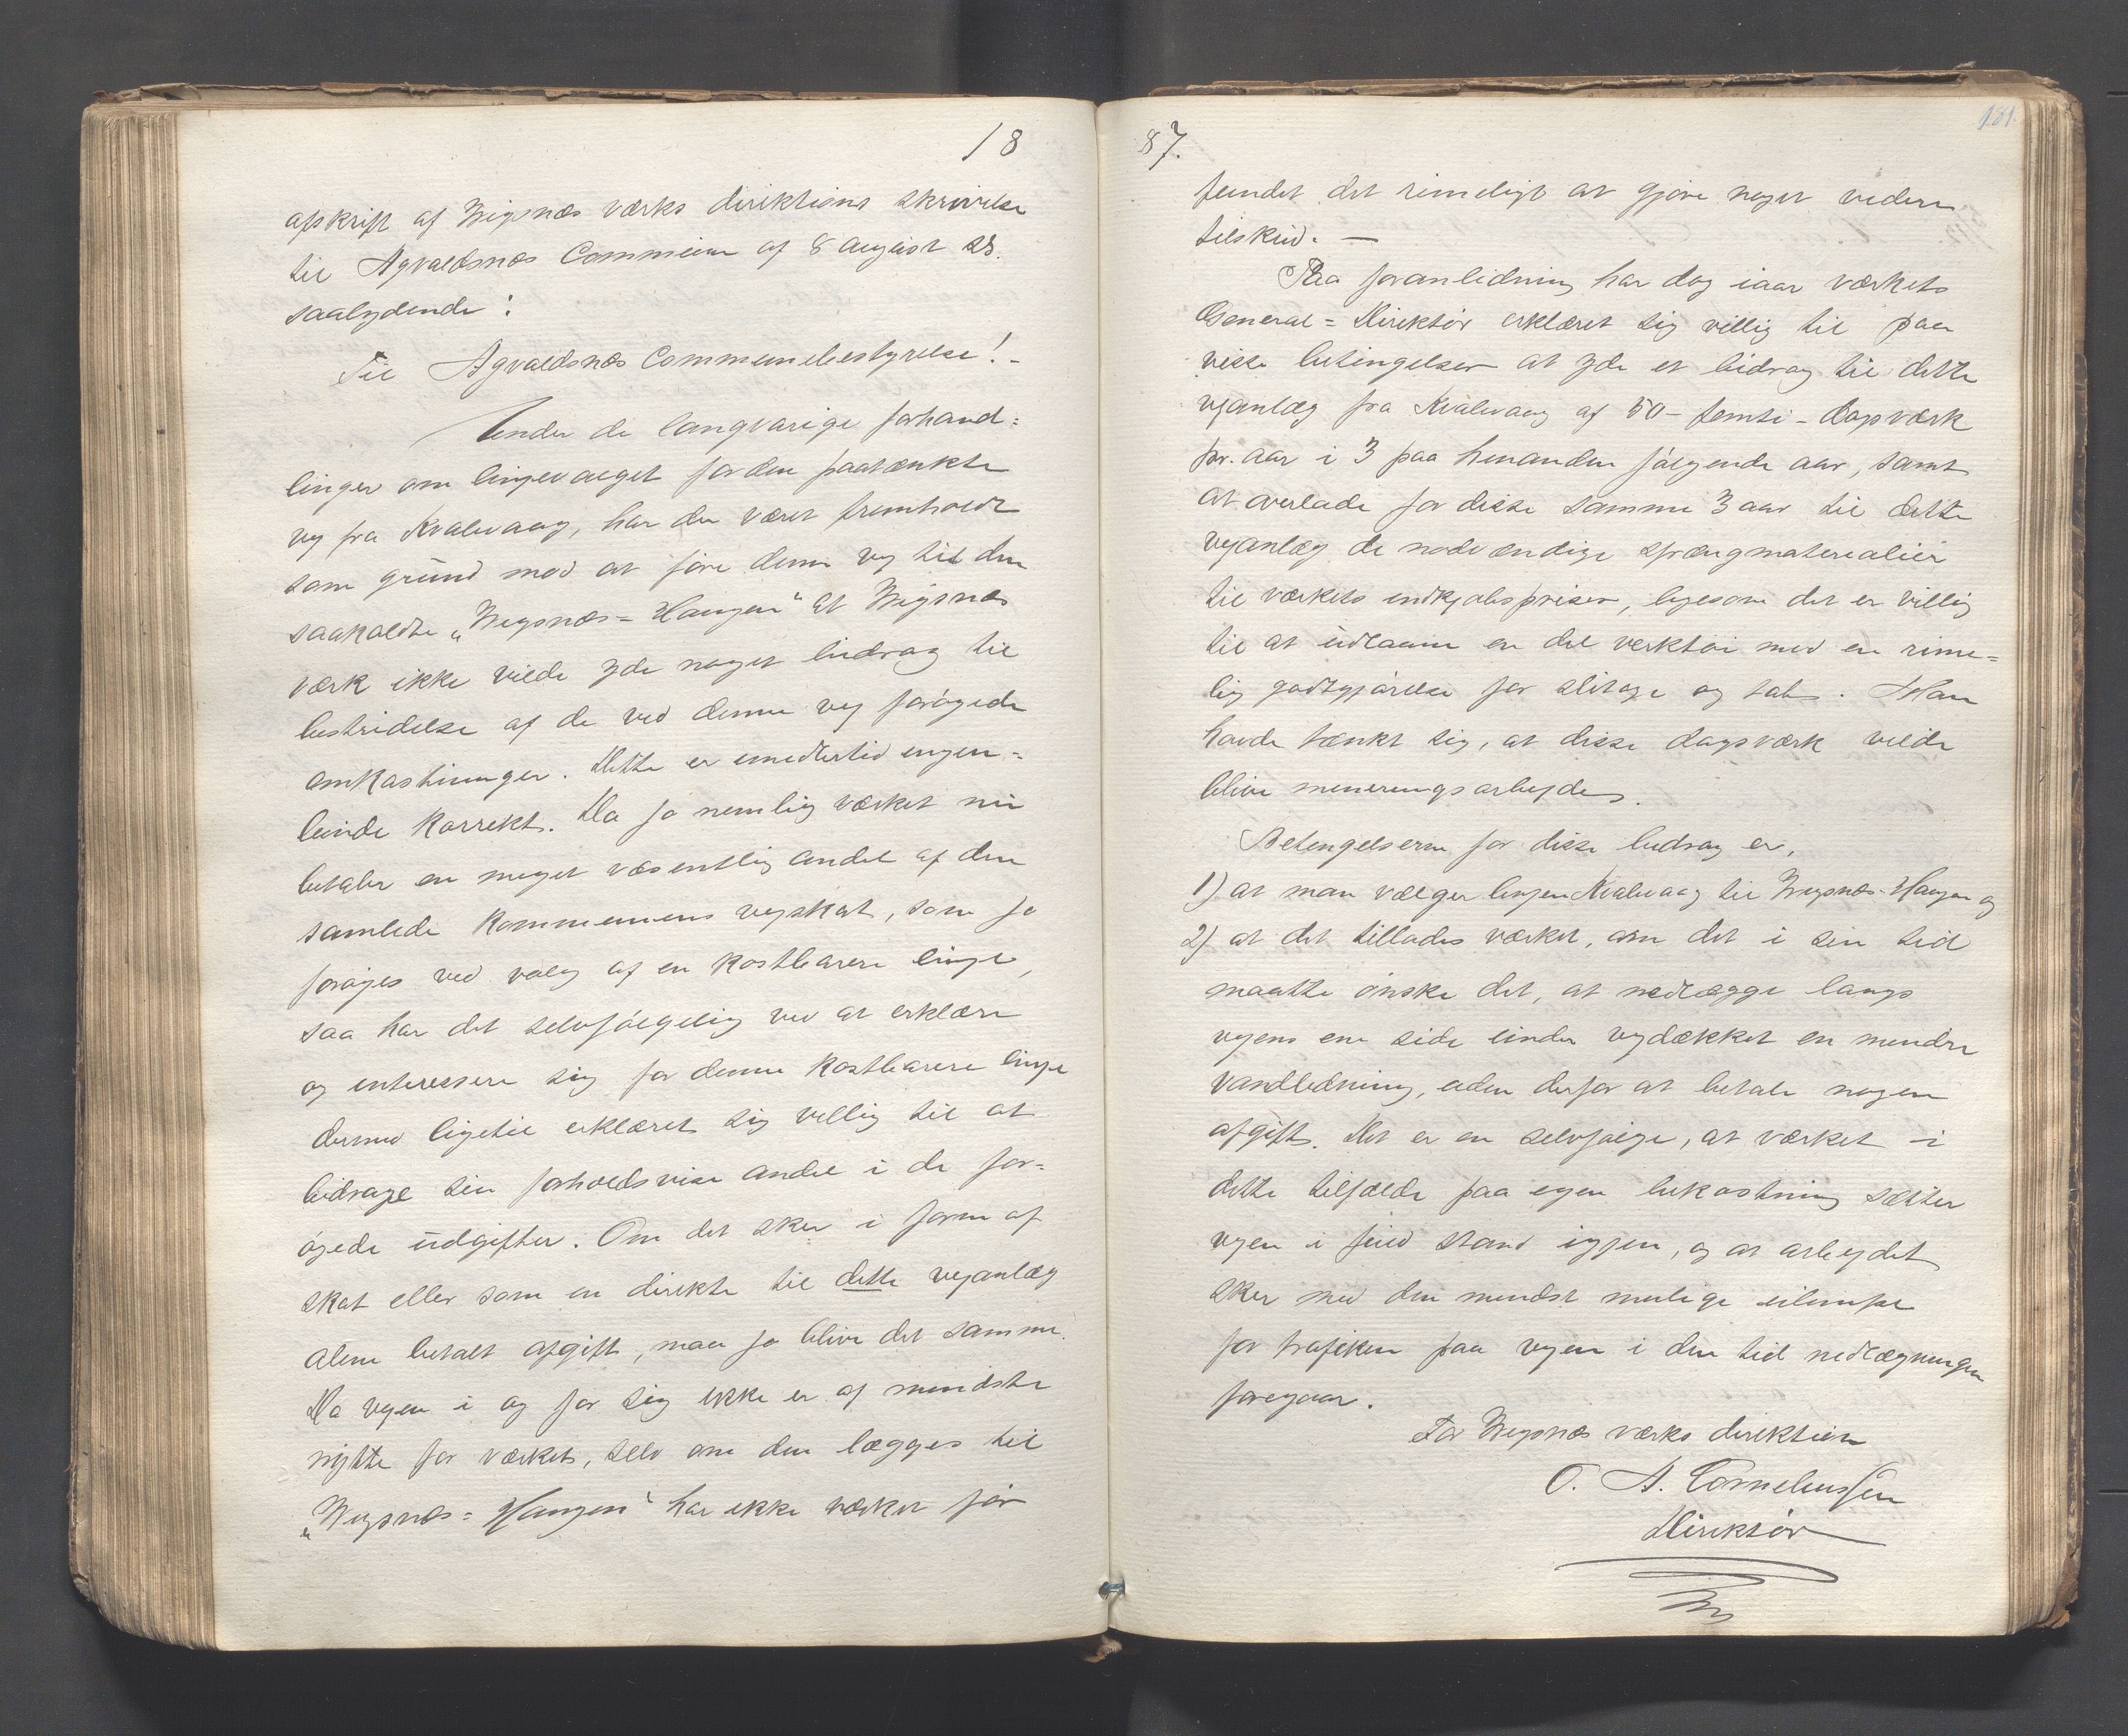 18
afskrift af Wigsnæs værks direktions skrivelse
til Agvaldsnæs Commune af 8 August d.s.
saalydende:
Til Agvaldsnæs Communebestyrelse! -
Under de langvarige forhand=
linger om linjevalget for den paatænkte
vej fra Kvalevaag, har der været fremholdt
som grund mod at føre denne vej til den
saakaldte „Wigsnæs=Haugen“ at Wigsnæs
værk ikke vilde yde noget bidrag til
bestridelse af de ved denne vej forøgede
omkostninger. Dette er imidlertid ingen=
lunde korrekt. Da jo nemlig værket nu
betaler en meget væsentlig andel af den
samlede Kommunens vejskat, som jo
forøges ved valg af en kostbarere linje,
saa har det selvfølgelig ved at erklære
og interessere sig for denne kostbarere linje
dermed ligetil erklæret sig villig til at
bidrage sin forholdsvise andel i de for=
øgede udgifter. Om det sker i form af
skat eller som en direkte til dette vejanlæg
alene betalt afgift, maa jo blive det samme.
Da vejen i og for sig ikke er af mindste
nytte for værket, selv om den lægges til
„Wigsnæs=Haugen“ har ikke værket før
87.
181.
fundet det rimeligt at gjøre noget videre
tilskud. —
Paa foranledning har dog iaar værkets
General=Direktør erklæret sig villig til paa
visse betingelser at yde et bidrag til dette
vejanlæg fra Kvalevaag af 50 - femti - dagsværk
pr. aar i 3 paa hinanden følgende aar, samt
at overlade for disse samme 3 aar til dette
vejanlæg de nødvændige sprængmaterialier
til værkets indkjøbspriser, ligesom det er villig
til at udlaane en del verktøi mod en rime=
lig godtgjørelse for slitage og tab. Man
havde tænkt sig, at disse dagsværk vilde
blive mineringsarbejder.
Betingelserne for disse bidrag er,
1) at man vælger linjen Kvalevaag til Wigsnæs-Haugen og
2) at det tillades værket, om det i sin tid
maatte ønske det, at nedlægge langs
vejens ene side under vejdækket en mindre
vandledning, uden derfor at betale nogen
afgift. Det er en selvfølge, at værket i
dette tilfælde paa egen bekostning sætter
vejen i fuld stand igjen, og at arbejdet
sker med den mindst mulige ulempe
for trafiken paa vejen i den tid nedlægningen
foregaar.
For Wigsnæs værks direktion
O. A. Corneliussen
Direktør